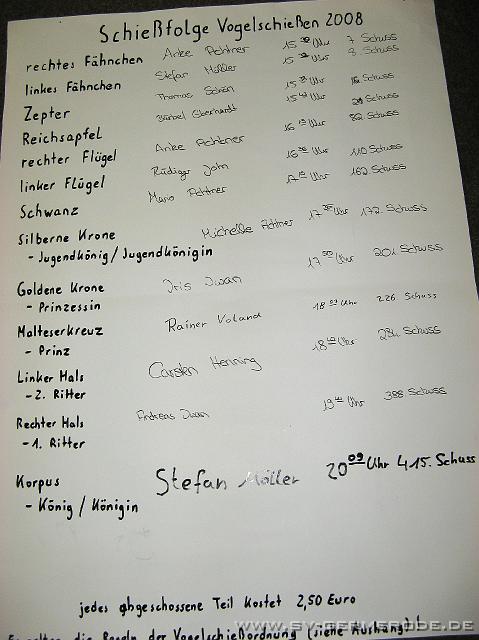 Schießfolge Vogelschießen 2008
rechtes Fähnchen Anke Achtner 15 Uhr 7 Schuss
linkes Fähnchen Stefan Möller 15 Uhr 8. Schuss
Zepter Thomas Schön 15 Uhr Schuss
Reichsapfel Bärbel Eberhardt 15 Uhr Schuss
rechter Flügel Anke Achtner 16 Uhr 82 Schuss
linker Flügel Rüdiger John 16 Uhr 110 Schuss
Schwanz Mario Achtner 17 Uhr 162 Schuss
Silberne Krone Michelle Achtner 17 Uhr 172 Schuss
- Jugendkönig / Jugendkönigin
Goldene Krone Iris Iwan 17 Uhr 201 Schuss
- Prinzessin
Malteserkreuz Rainer Voland 18 Uhr 226 Schuss
- Prinz
Linker Hals Carsten Henning 18 Uhr Schuss
- 2. Ritter
Rechter Hals Andreas Iwan 19 Uhr 388 Schuss
- 1. Ritter
Korpus Stefan Möller 20 09 Uhr 415. Schuss
- König / Königin
jedes abgeschossene Teil kostet 2,50 Euro
die Regeln der Vogelschießordnung (siehe Aushang!
WWW.SV-GERNRODE.DE